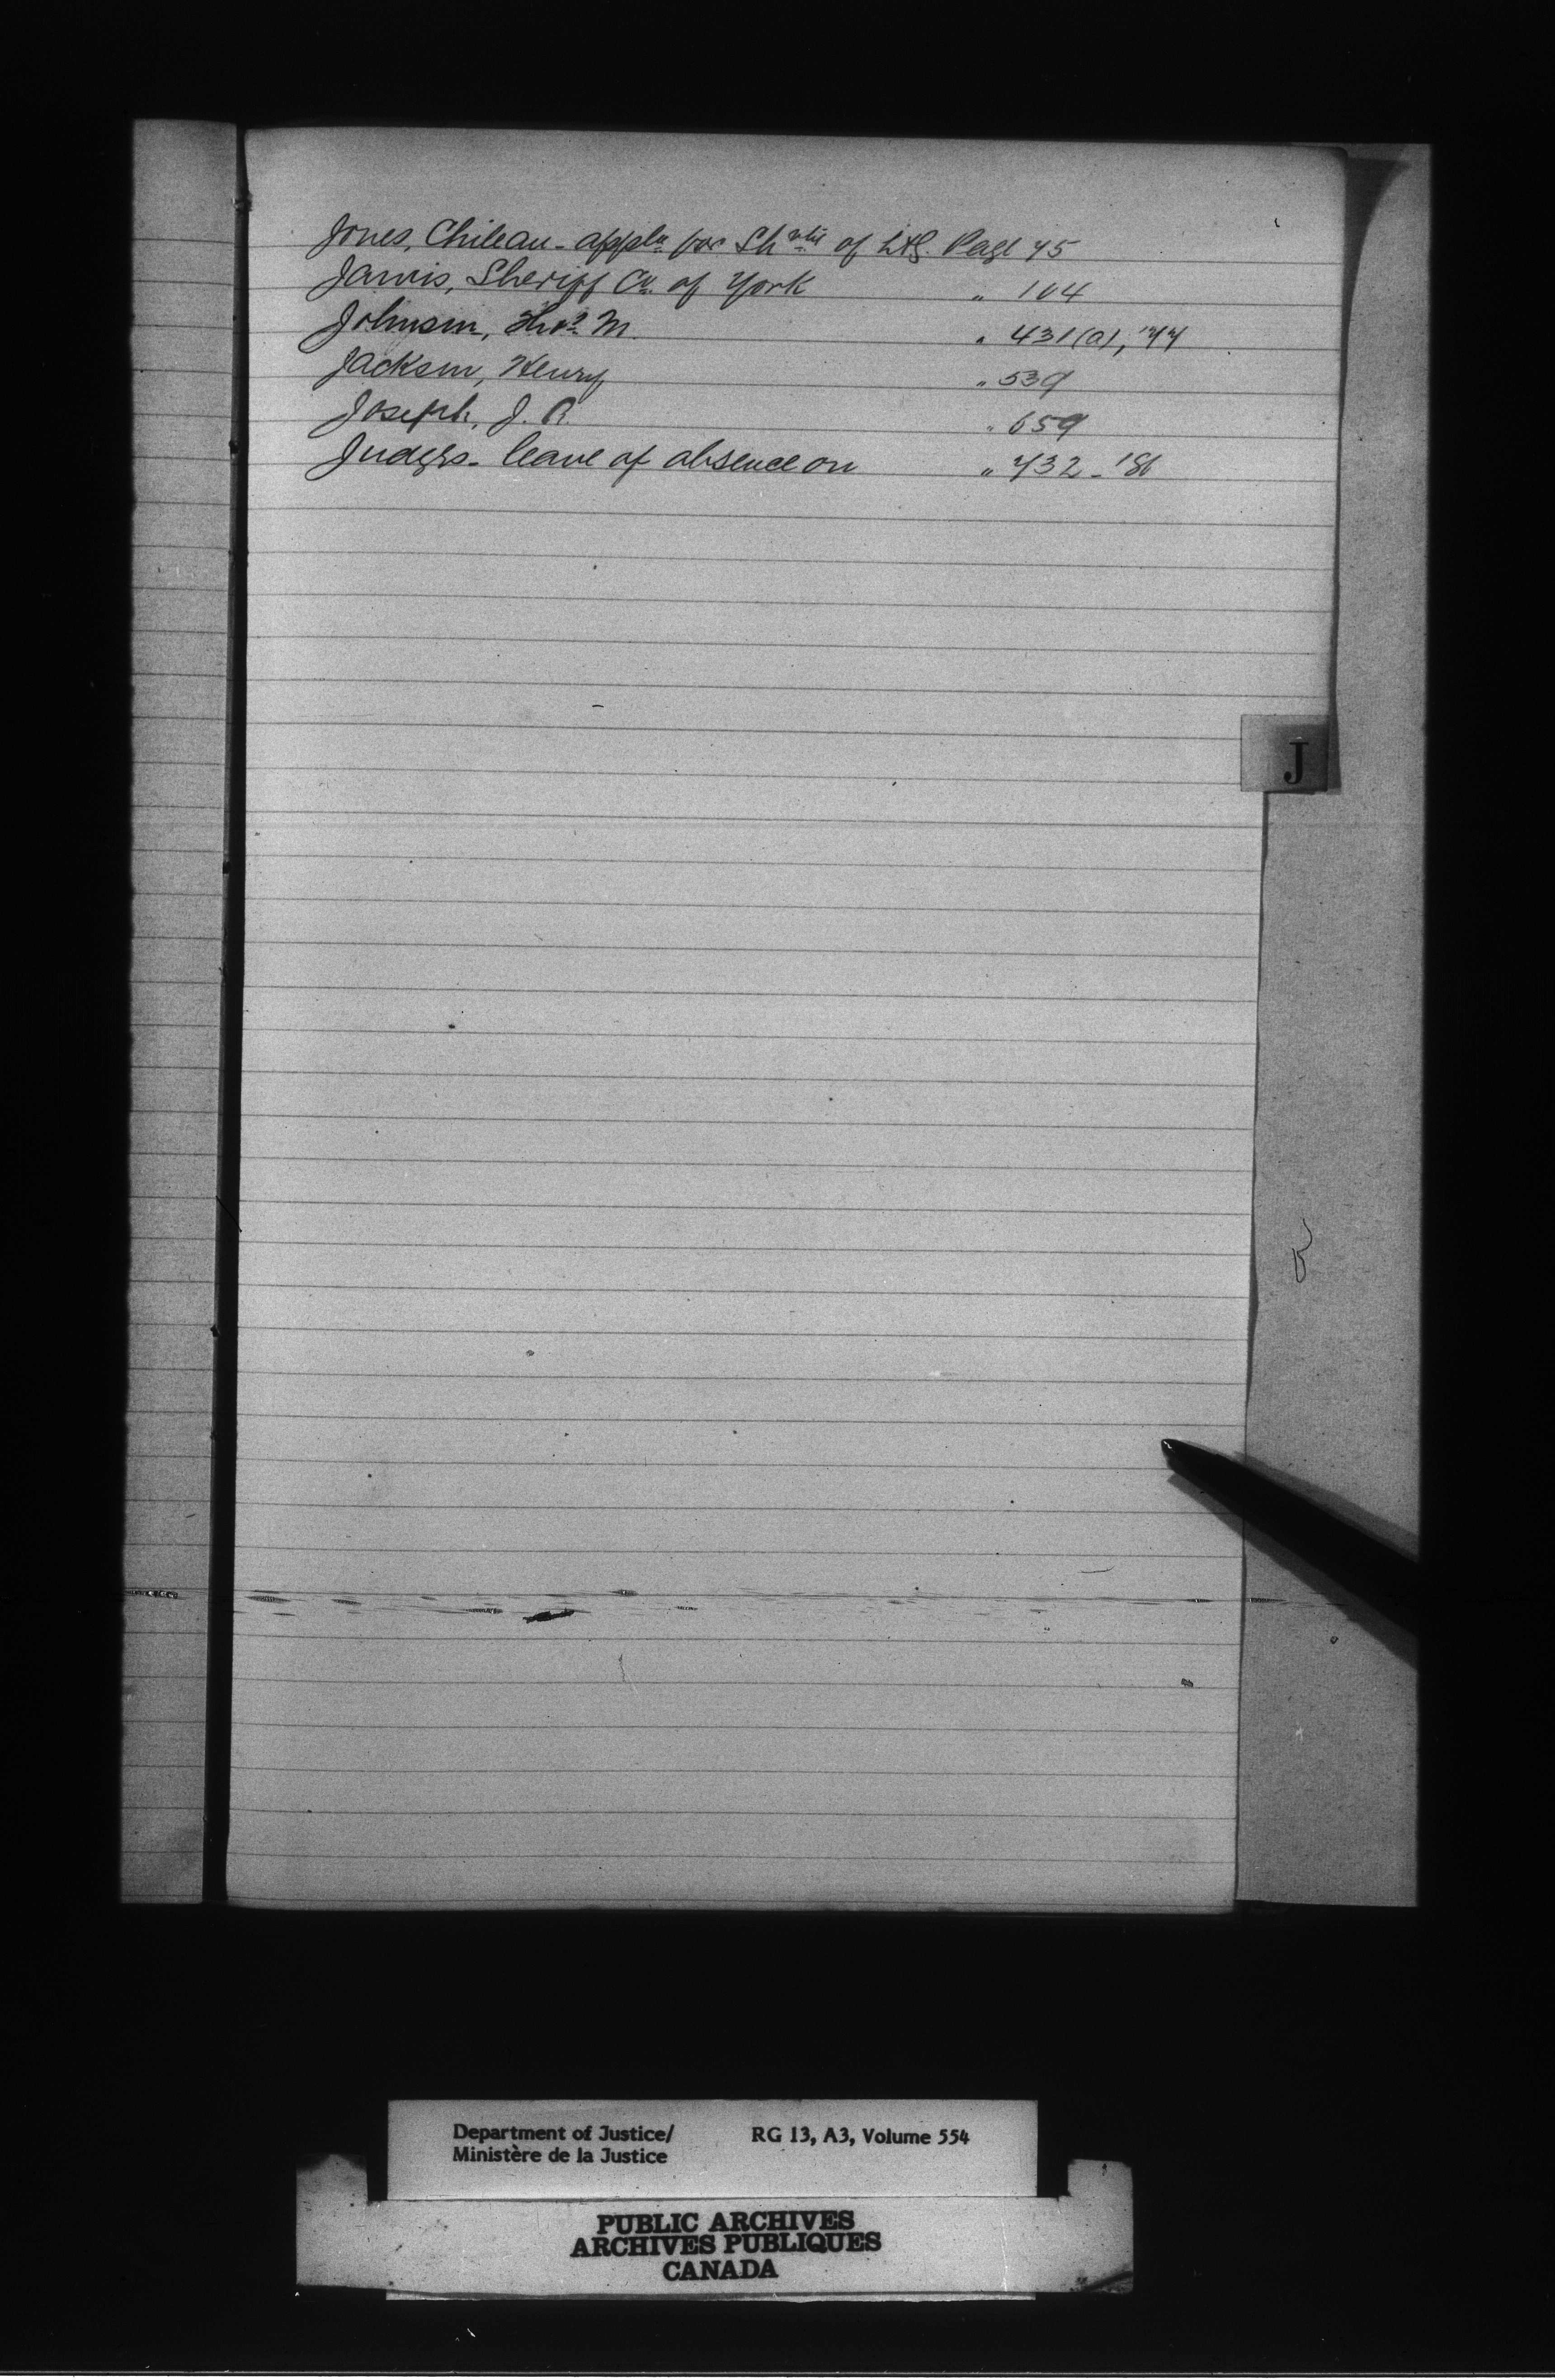 Jones, Chileau - appln for Sh of L&G. Page 75
Jarvis, Sheriff Co. of York " 104
Johnson, Thos M. " 431(a), '77
Jackson, Henry " 539
Joseph, J. R. " 659
Judges - leave of absence on " 732 - '86
J
Department of Justice/ RG 13, A3, Volume 554
Ministère de la Justice
PUBLIC ARCHIVES
ARCHIVES PUBLIQUES
CANADA